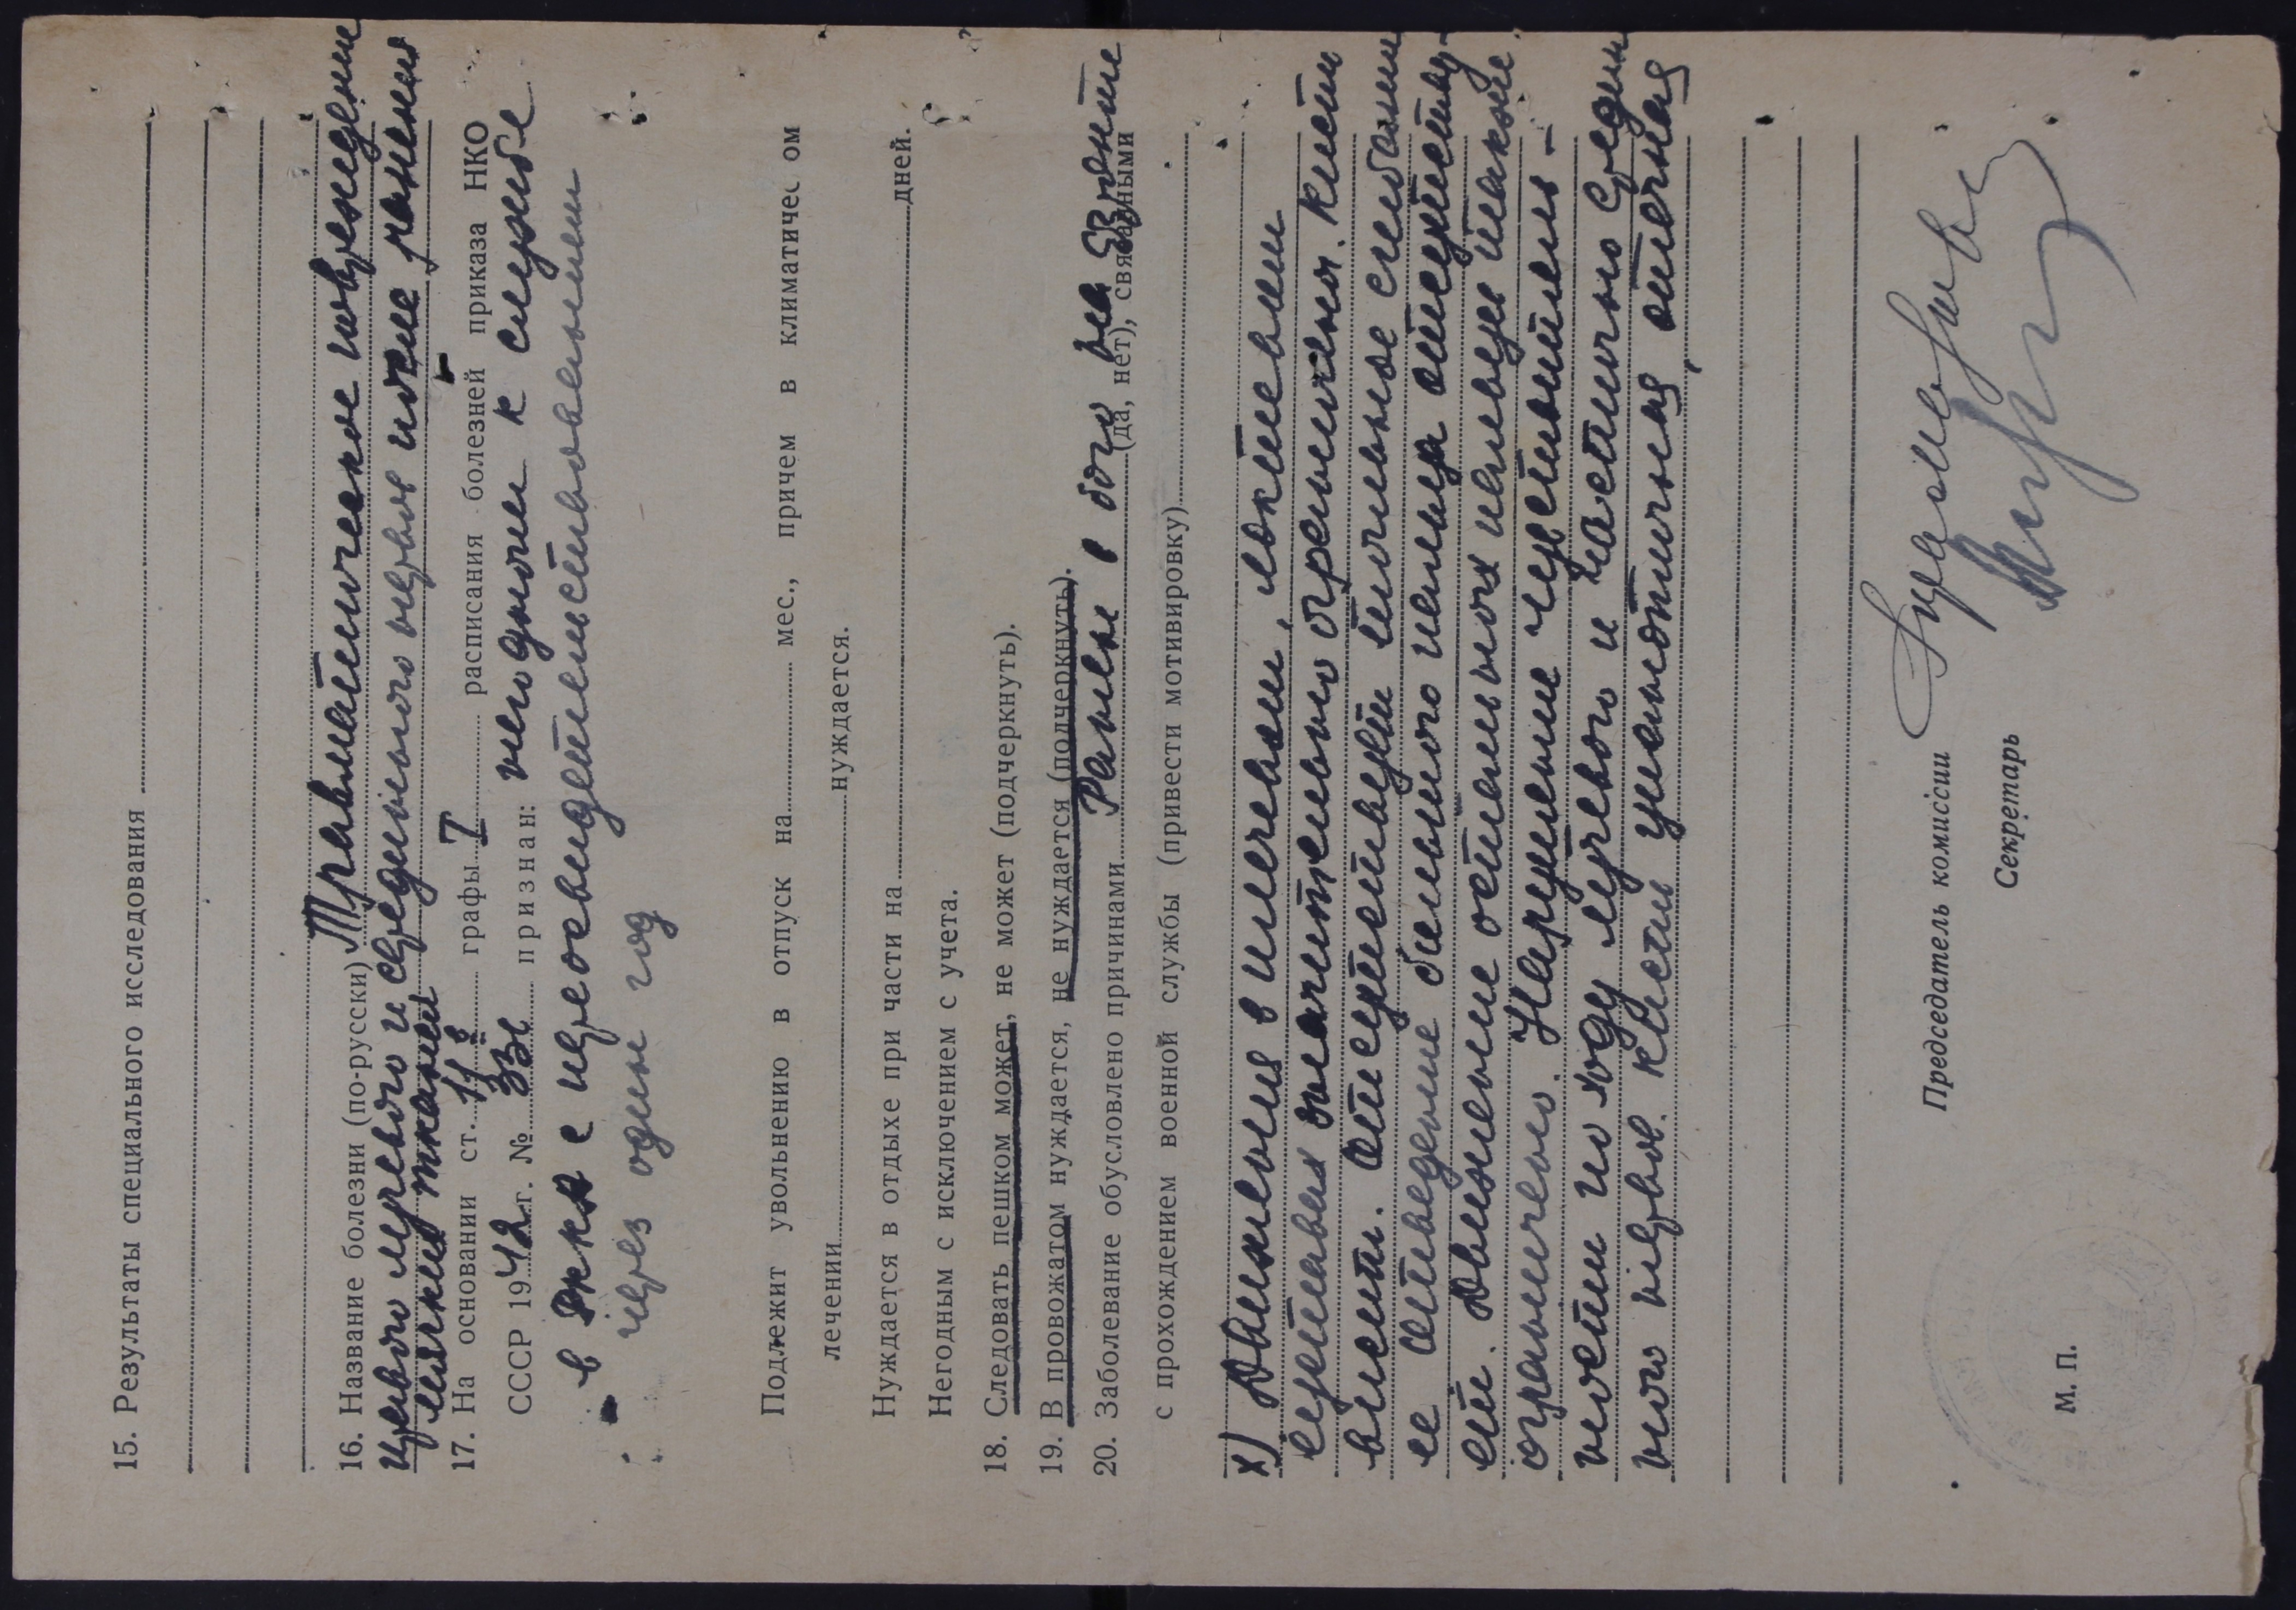 15. Результаты специального исследования
16. Название болезни (по-русски) Травматическое повреждение
цевого лучевого и срединного нервов после ранения
мягких тканей
17. На основании ст. 11б графы I расписания болезней приказа НКО
СССР 1942 г. № 336 признан: негодным к службе
в РККА с переосвидетельствованием
через один год
Подлежит увольнению в отпуск на мес., причем в климатичес ом
лечении нуждается.
Нуждается в отдыхе при части на дней.
Негодным с исключением с учета.
18. Следовать пешком может, не может (подчеркнуть).
19. В провожатом нуждается, не нуждается (подчеркнуть).
20. Заболевание обусловлено причинами Ранен в бою на фронте
(да, нет), связанными
с прохождением военной службы (привести мотивировку)
х) Движения в плечевом, локтевом
суставах значительно ограничены. Кисть
висит. Отсутствует тыльное сгибание
ее отведение большого пальца отсутству-
ет. Движение остальных пальцев также
ограничено. Нарушение чувствитель-
ности по ходу лучевого и частично средин
ного нервов. Кисть отечная
Председатель комиссии
Секретарь
М. П.